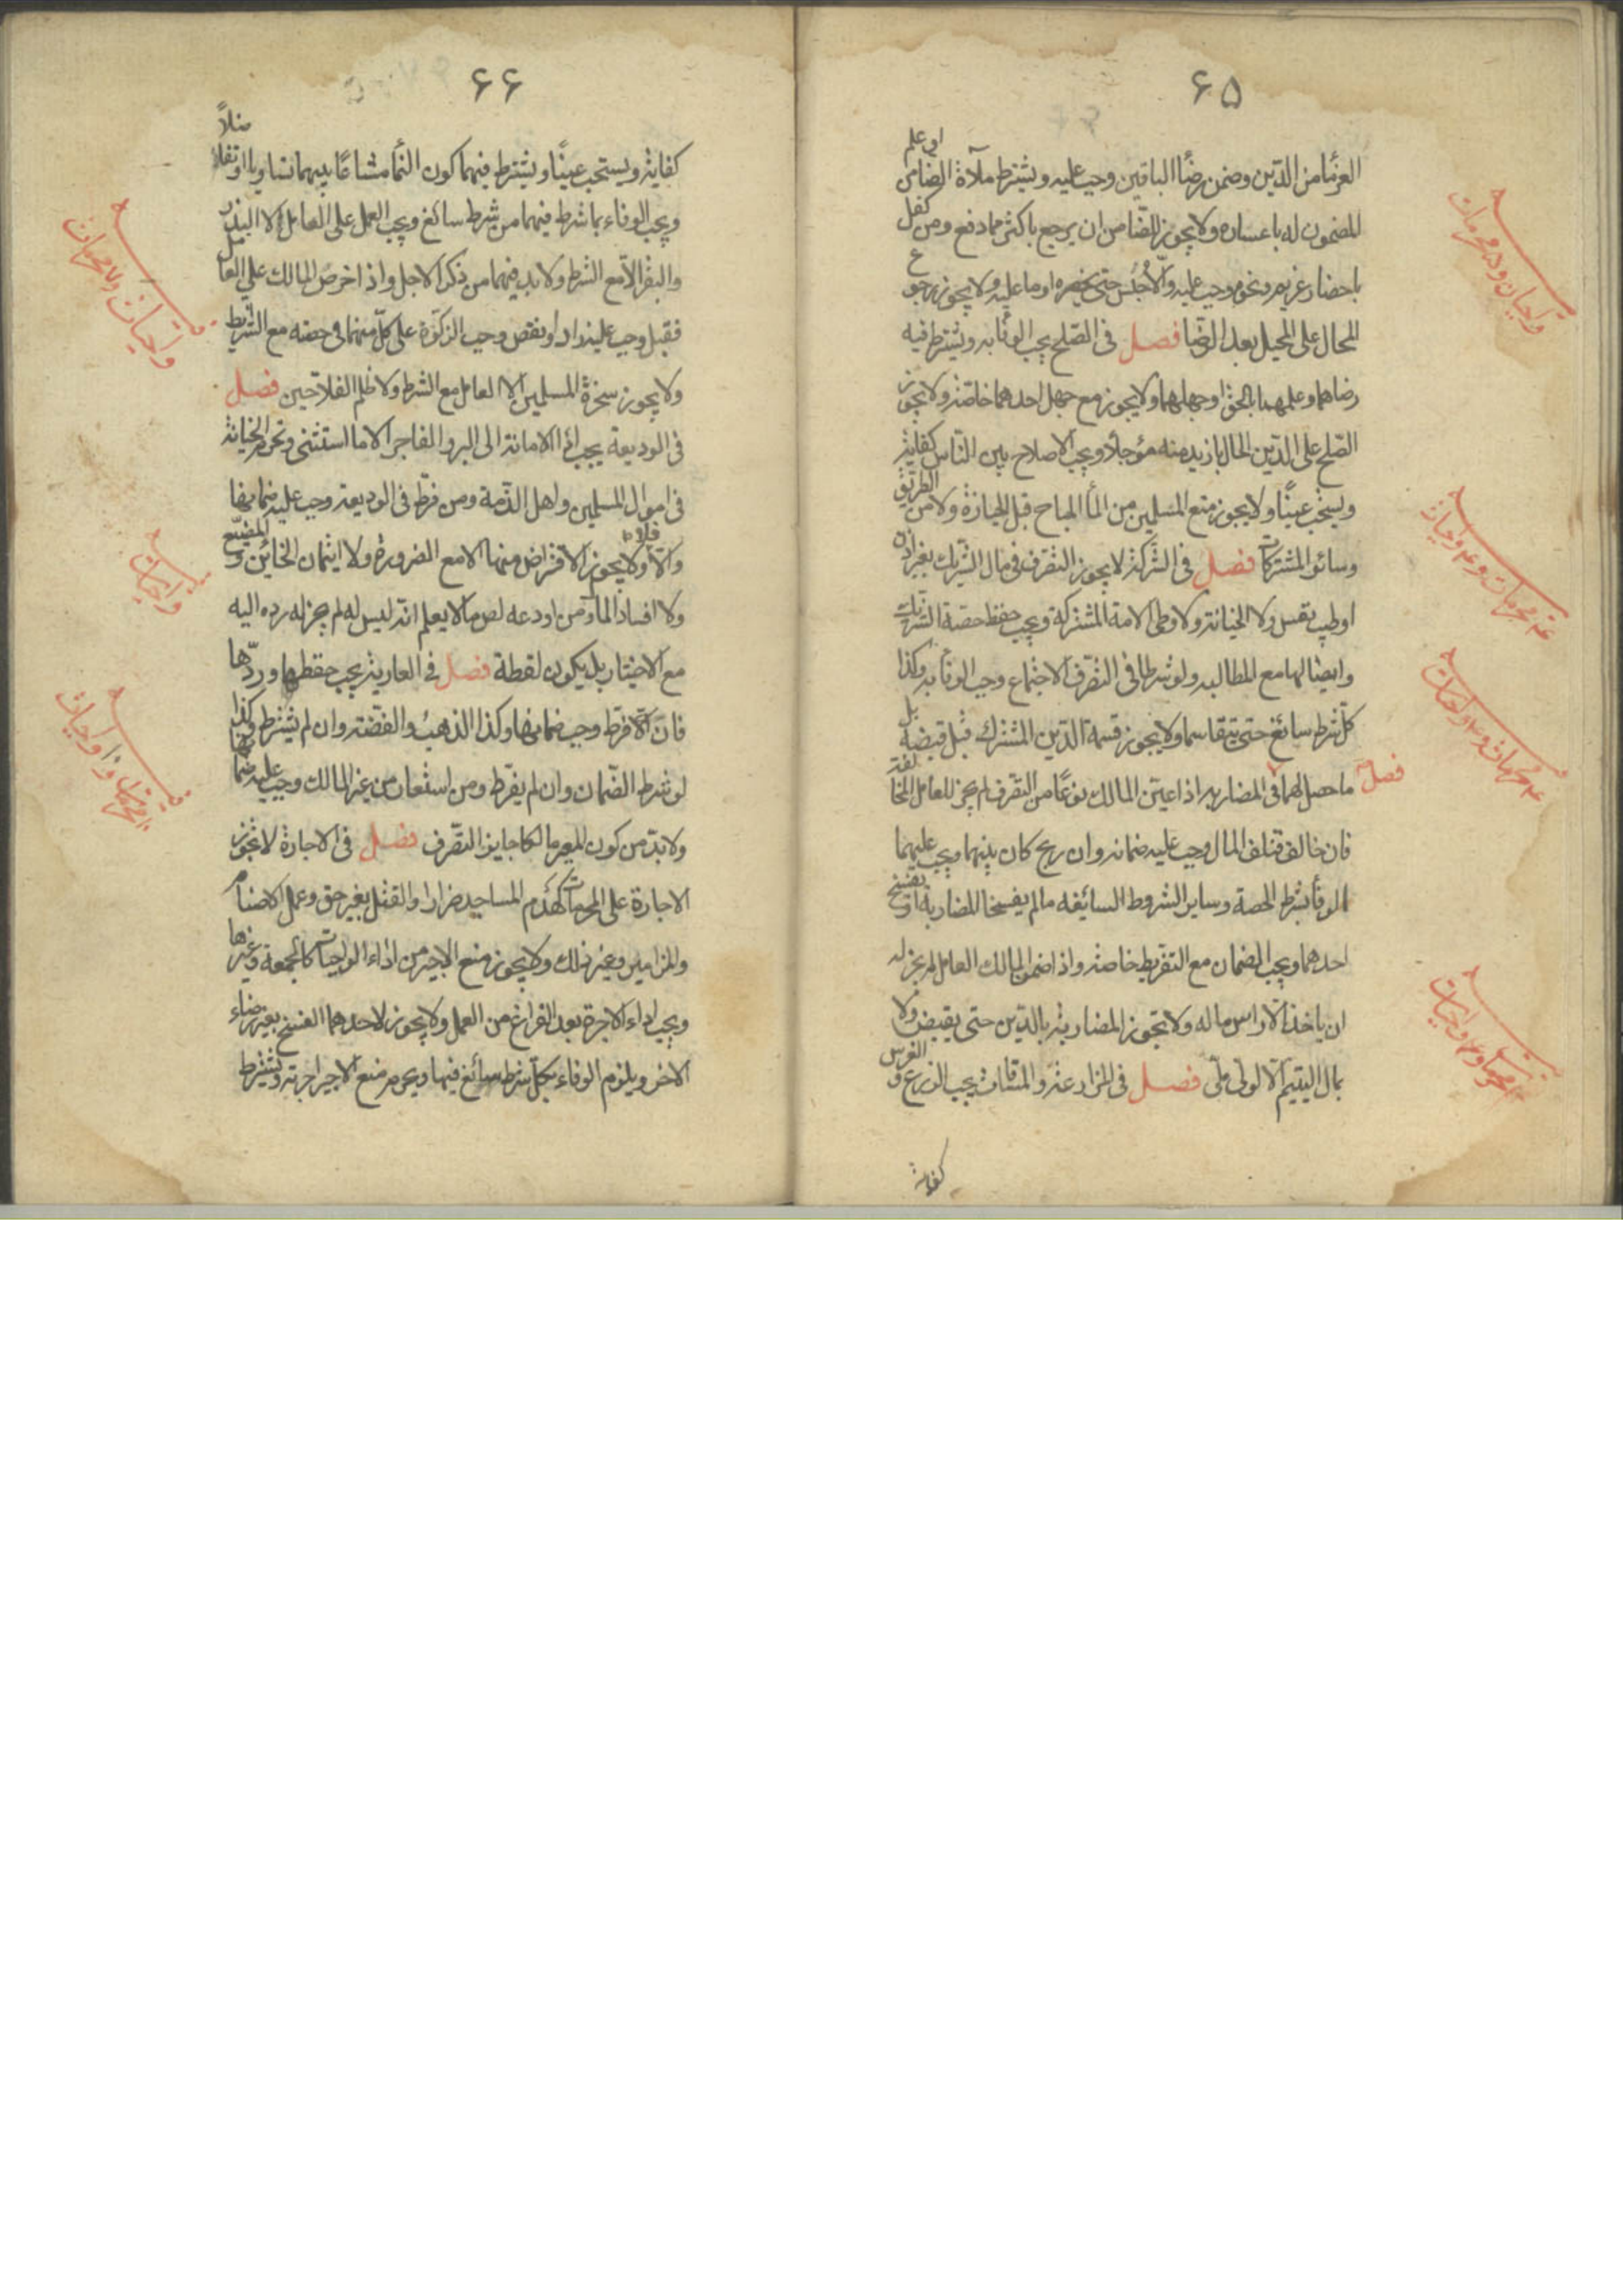 ۶۵
او علم
الغرمأ من الدّين وضمن برضأ الباقين وجب عليه ويشترط ملآة الضامن
المضمون له باعساره ولا يجوز للضّامن ان يرجع باكثر مما دفع ومن كفل
باحضار غريم ونحوه وجب عليه والّا حُبس حتى يحضره او ما عليه ولا يجوز رجوع
المحال على المحيل بعد الرّضا فصل في الصّلح يجب الوفأ به ويشترط فيه
رضاهما وعلمهما بالحق او جهلهما ولا يجوز مع جهل احدهما خاصّة ولا يجوز
الصّلح على الدّين الحال بازيد منه مؤجلاً ويجب الاصلاح بين النّاس كفاية
ويستحب عينًا ولا يجوز منع المسلمين من المأ المباح قبل الحيازة ولا من الطريق
وسائر المشتركات فصل في الشّركة لا يجوز التصرّف في مال الشّريك بغير اذن
او طيب نفس ولا الخيانة ولا وطى الامة المشتركة ويجب حفظ حصّة الشريك
وايصالها مع المطالبه ولو شرطا في التصرّف الاجتماع وجب الوفأ به وكذا
كلّ شرط سائغ حتى يتقاسما ولا يجوز قسمة الدّين المشترك قبل قبضه بل
ما حصل لهما فصل في المضاربه اذا عيّن المالك نوعًا من التصرف لم يجز للعامل المخالفة
فان خالف فتلف المال وجب عليه ضمانه وان ربح كان بينهما ويجب عليهما
الوفأ بشرط الحصة وساير الشروط السائغه ما لم يفسخا المضاربة او يفسخ
احدهما ويجب الضمان مع التفريط خاصّة واذا ضمن المالك العامل لم يجز له
ان ياخذ الّا راس ماله ولا تجوز المضاربة بالدّين حتى يقبض ولا
بمال اليتيم الّا لولى ملّى فصل في المزارعة والمساقات يجب الزرع والغرس
كفاية
۶۶
كفاية ويستحب عينًا ويشترط فيهما كون النّمأ مشاعًا بينهما تساويا او تفاضلاً
ويجب الوفاء بما شرط فيهما من شرط سائغ ويجب العمل على العامل لا البذر
والبقر الّا مع الشرط ولا بد فيهما من ذكر الاجل واذا خرص المالك على العامل
فقبل وجب عليه زاد او نقص وجب الزكوة على كلّ منهما فى حصته مع الشرائط
ولا يجوز سخرة المسلمين الا العامل مع الشرط ولا ظلم الفلاحين فصل
في الوديعة يجب ادأ الامانة الى البر والفاجر الا ما استثنى وتحرم الخيانة
في اموال المسلمين واهل الذّمة ومن فرّط في الوديعة وجب عليه ضمانها
والّا فلا ولا يجوز الاقتراض منها الا مع الضرورة ولا ايتمان الخائن والمضيّع
ولا افساد المال ومن اودعه لص مالا يعلم انّه ليس له لم يجز له رده اليه
مع الاختيار بل يكون لقطة فصل في العارية يجب حفظها وردّها
فان فرّط وجب ضمانها وكذا الذهب والفضّة وان لم يشترط وكذا
لو شرط الضّمان وان لم يفرّط ومن استعار من غير المالك وجب عليه ضمانها
ولا بدّ من كون المعير مالكا جايز التّصرف فصل في الاجارة لا تجوز
الاجارة على المحرمات كهدم المساجد ضرارا والقتل بغير حق وعمل الاصنام
والمزامير وغير ذلك ولا يجوز منع الاجير من اداء الواجبات كالجمعة وغيرها
ويجب اداء الاجرة بعد الفراغ من العمل ولا يجوز لاحدهما الفسخ بغير رضاء
الاخر ويلزم الوفاء بكل شرط سائغ فيها ويحرم منع الاجير اجرته ويشترط